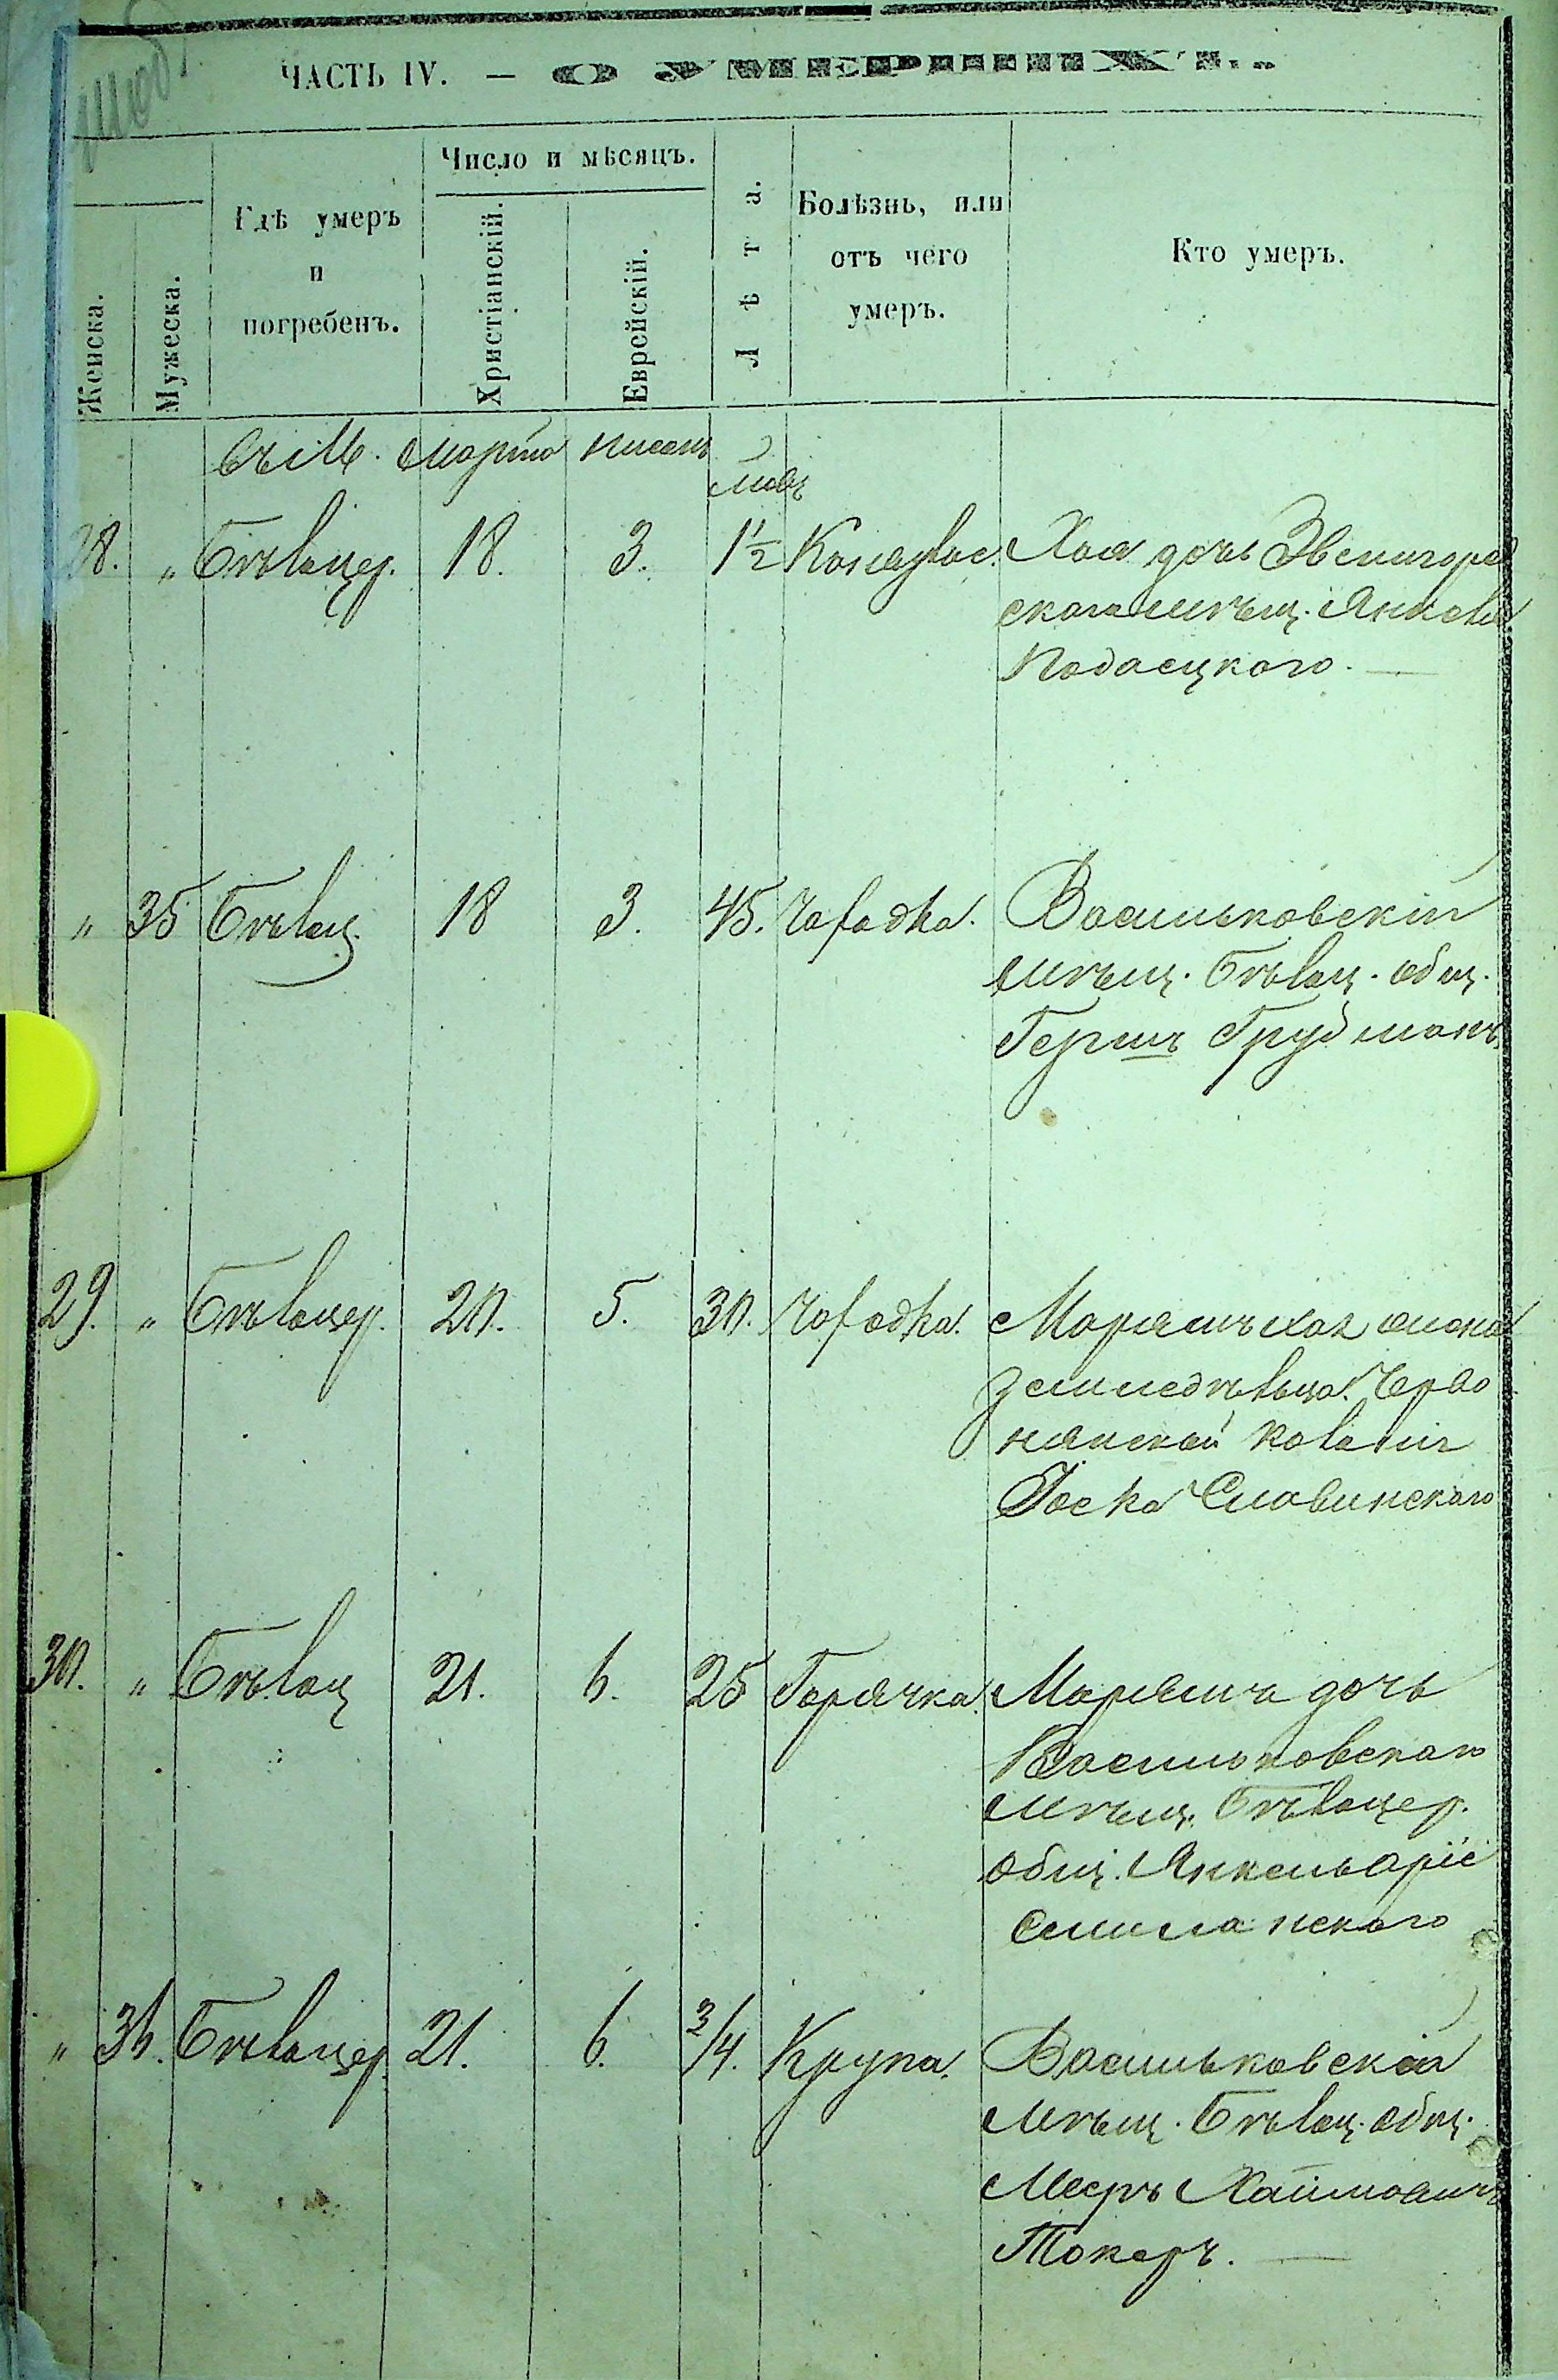 ЧАСТЬ IV. — О УМЕРШИХЪ.
Женска.
Мужеска.
Гдѣ умеръ
и
погребенъ.
Число и мѣсяцъ.
Христіанскій.
Еврейскій.
Лѣта.
Болѣзнь, или
отъ чего
умеръ.
Кто умеръ.
Въ М. Марта Нисанъ
28. " Бѣлацер. 18. 3. 1½ Хая дочь Звенигород
скаго мѣщ. Янкеля
Подоецкого. —
" 35 Бѣлац. 18 3. 45. Васильковскій
мѣщ. Бѣлац. общ.
Гершъ Грубманъ
29. " Бѣлацер. 20. 5. 30. Маріямъ Хая жена
земледѣльца Черво
нянской колоніи
Іоська Словинскаго
30. " Бѣлац 21. 6. 25 Горячка. Маріямъ дочь
Васильковскаго
мѣщ. Бѣлацер.
общ. Янкель Аріе
Смилянскаго
" 36. Бѣлацер. 21. 6. 3/4. Крупа. Васильковскій
мѣщ. Бѣлац. общ.
Мееръ Хаимовичъ
Токеръ. —